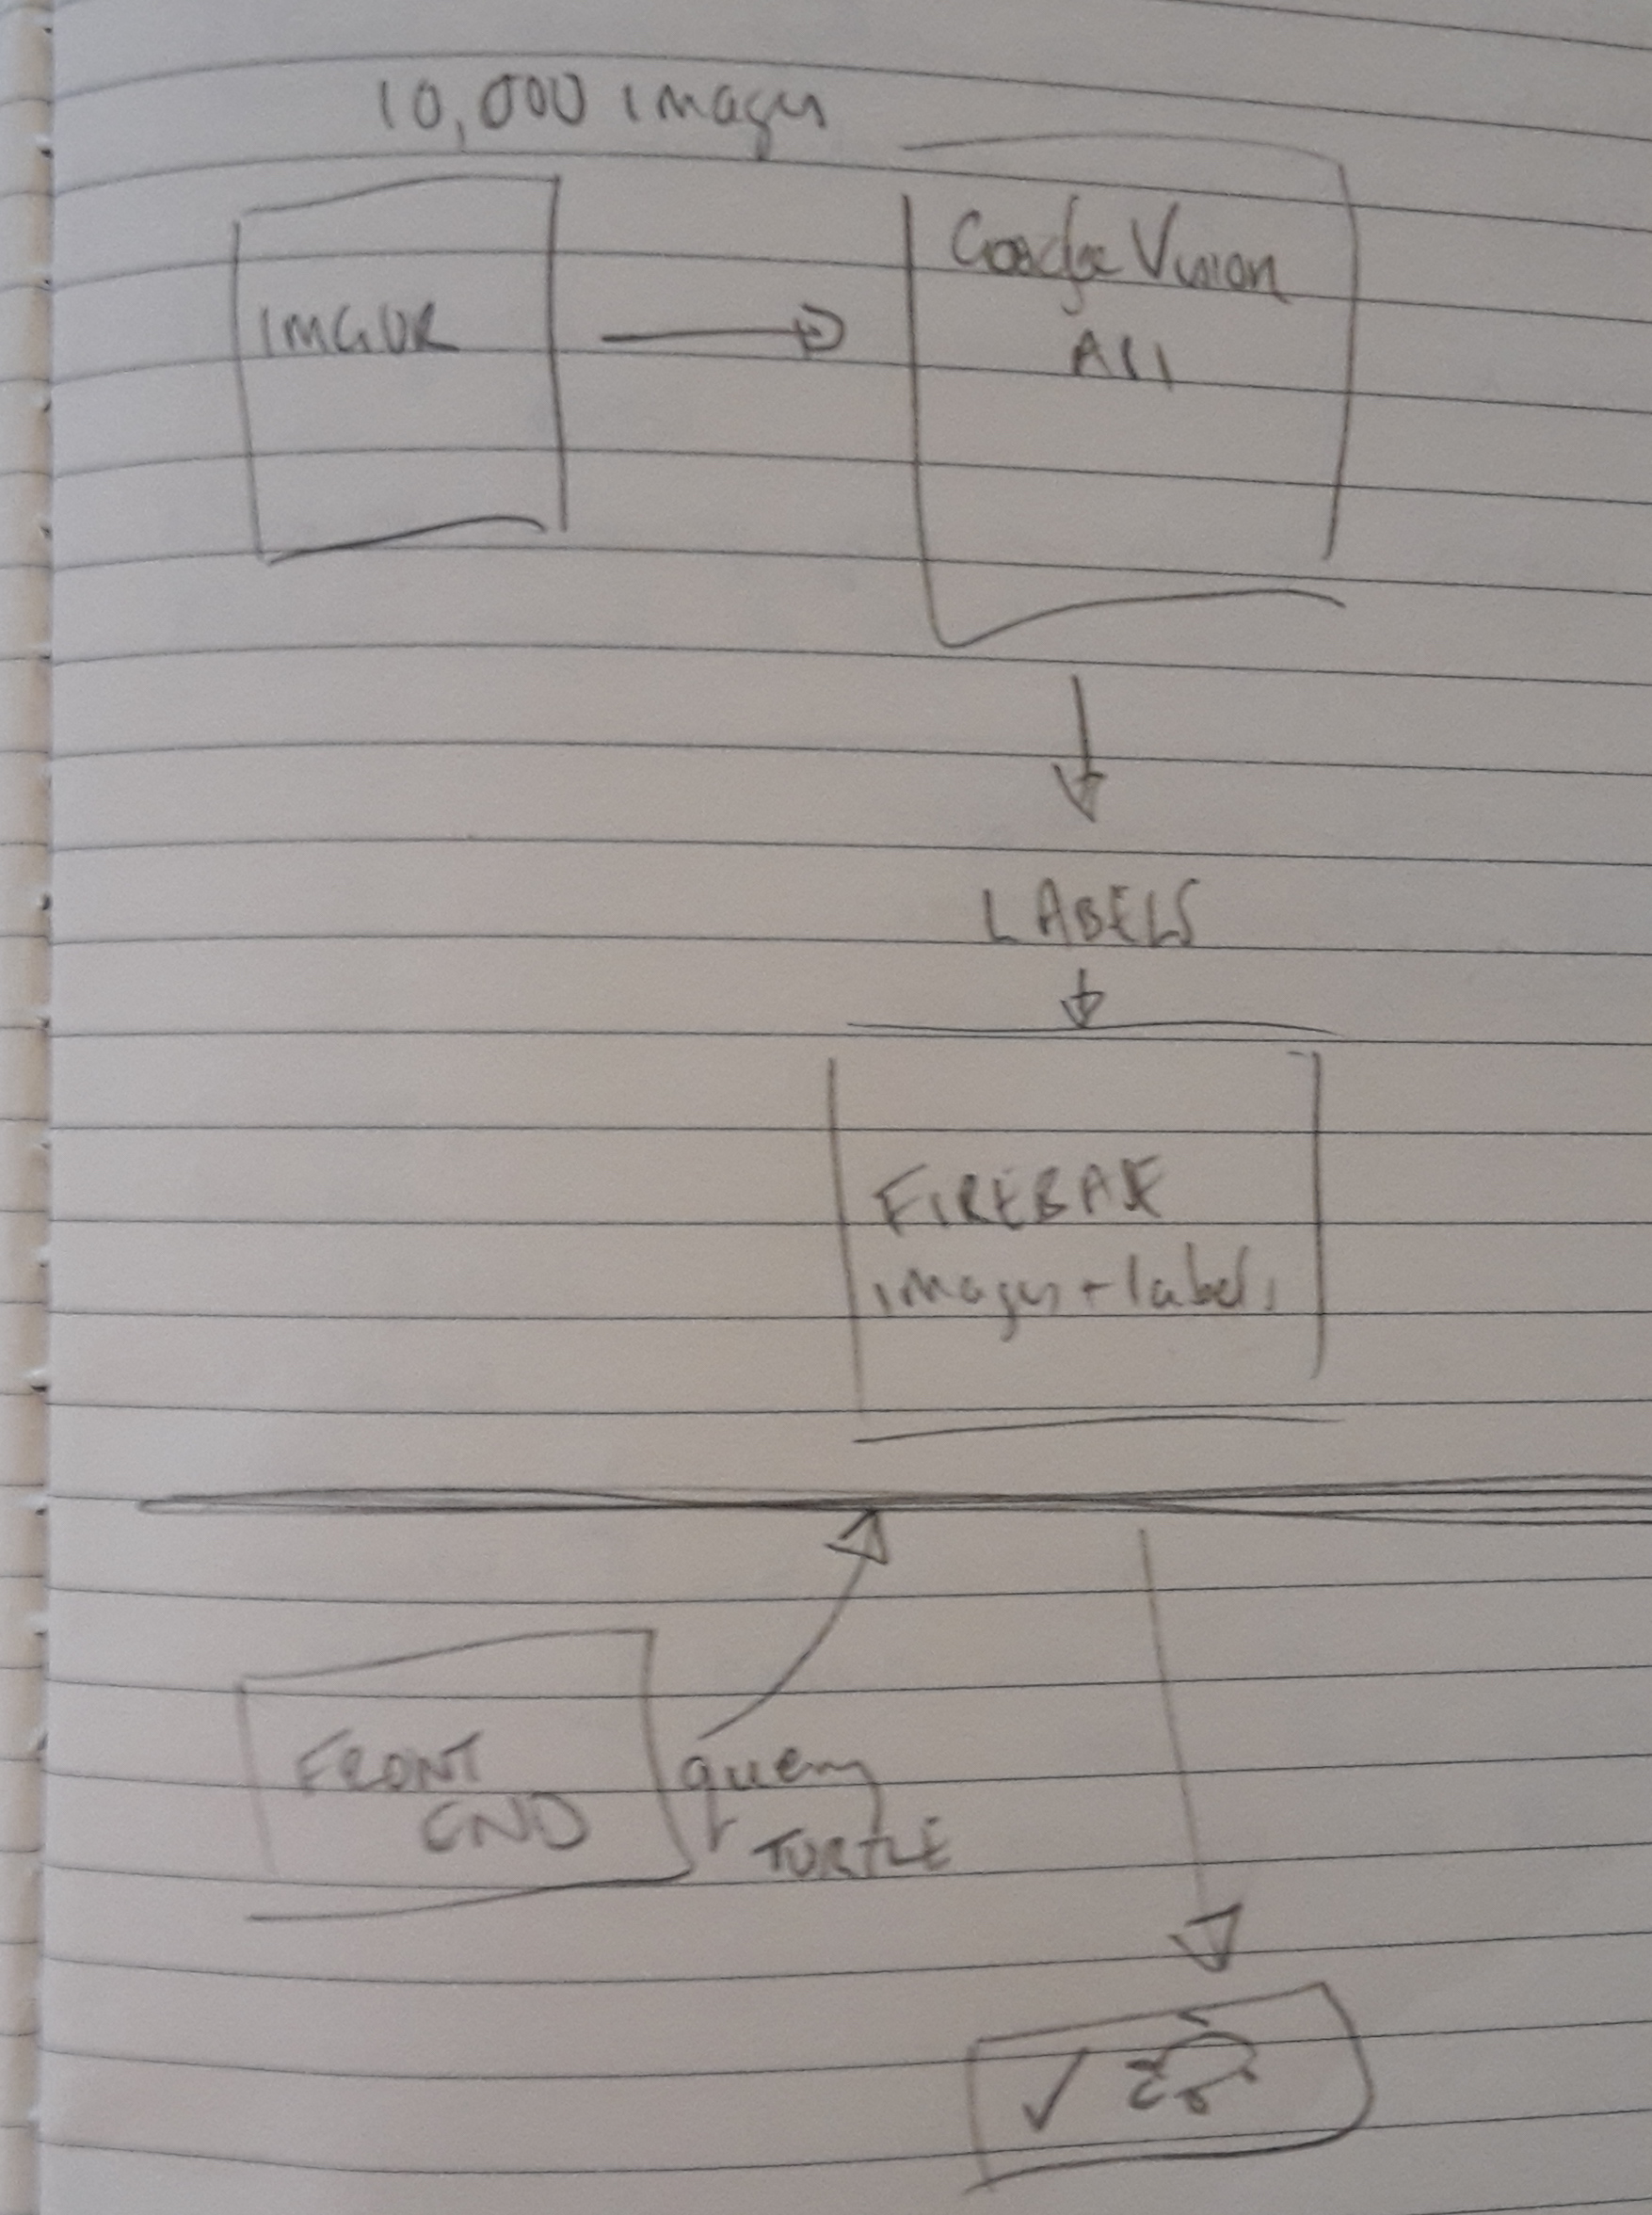 10,000 images
IMGUR
Google Vision
API
LABELS
FIREBASE
images + labels
FRONT
END
query
TURTLE